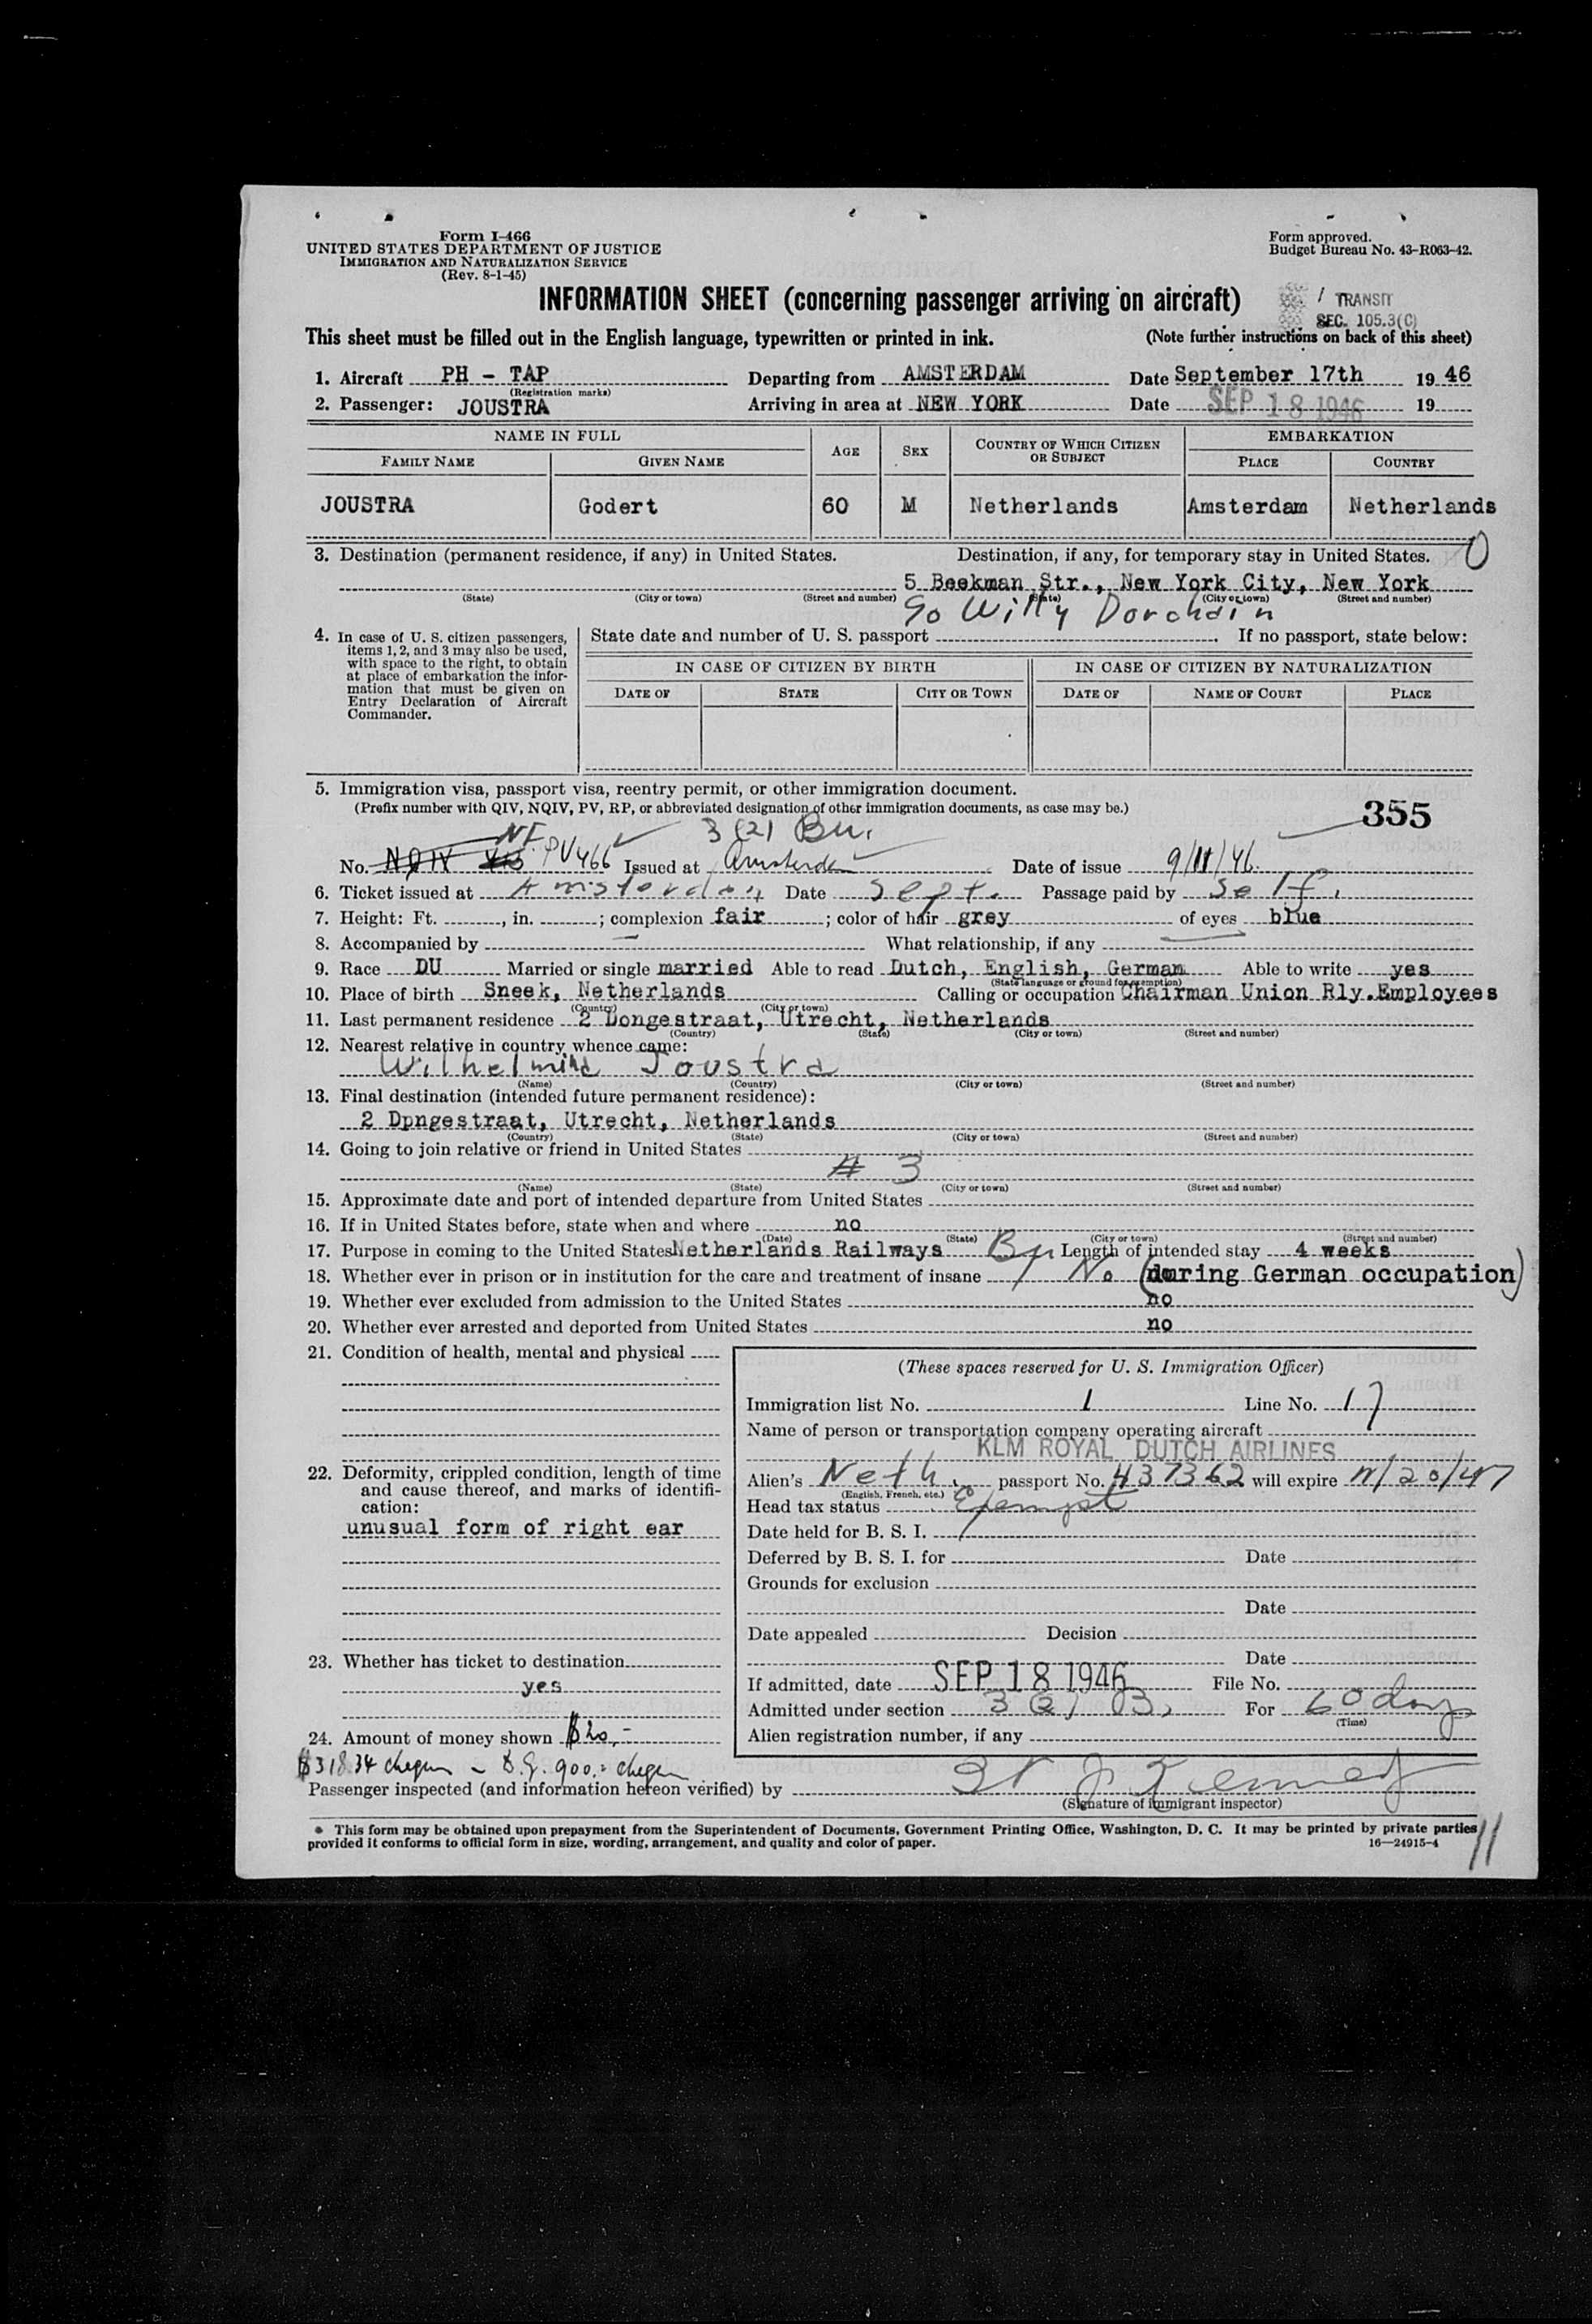 Form I-466
UNITED STATES DEPARTMENT OF JUSTICE
IMMIGRATION AND NATURALIZATION SERVICE
(Rev. 8-1-45)
Form approved.
Budget Bureau No. 43-R063-42.
INFORMATION SHEET (concerning passenger arriving on aircraft)
TRANSIT
SEC. 105.3(C)
This sheet must be filled out in the English language, typewritten or printed in ink. (Note further instructions on back of this sheet)
1. Aircraft PH - TAP Departing from AMSTERDAM Date September 17th 19 46
(Registration marks)
2. Passenger: JOUSTRA Arriving in area at NEW YORK Date SEP 18 1946 19
NAME IN FULL AGE SEX COUNTRY OF WHICH CITIZEN OR SUBJECT EMBARKATION
FAMILY NAME GIVEN NAME PLACE COUNTRY
JOUSTRA Godert 60 M Netherlands Amsterdam Netherlands
3. Destination (permanent residence, if any) in United States. Destination, if any, for temporary stay in United States. 0
5 Beekman Str., New York City, New York
(State) (City or town) (Street and number) (State) (City or town) (Street and number)
Willy
4. In case of U. S. citizen passengers, items 1, 2, and 3 may also be used, with space to the right, to obtain at place of embarkation the information that must be given on Entry Declaration of Aircraft Commander.
State date and number of U. S. passport . If no passport, state below:
IN CASE OF CITIZEN BY BIRTH IN CASE OF CITIZEN BY NATURALIZATION
DATE OF STATE CITY OR TOWN DATE OF NAME OF COURT PLACE
5. Immigration visa, passport visa, reentry permit, or other immigration document.
(Prefix number with QIV, NQIV, PV, RP, or abbreviated designation of other immigration documents, as case may be.) 355
3(2) Bu.
No. NQIV PV466 Issued at Amsterdam Date of issue 9/11/46.
6. Ticket issued at Amsterdam Date Sept. Passage paid by Self.
7. Height: Ft. , in. ; complexion fair ; color of hair grey of eyes blue
8. Accompanied by What relationship, if any
9. Race DU Married or single married Able to read Dutch, English, German Able to write yes
(State language or ground for exemption)
10. Place of birth Sneek, Netherlands Calling or occupation Chairman Union Rly.Employees
(Country) (City or town)
11. Last permanent residence 2 Dongestraat, Utrecht, Netherlands
(Country) (State) (City or town) (Street and number)
12. Nearest relative in country whence came:
Wilhelmina Joustra
(Name) (Country) (City or town) (Street and number)
13. Final destination (intended future permanent residence):
2 Dpngestraat, Utrecht, Netherlands
(Country) (State) (City or town) (Street and number)
14. Going to join relative or friend in United States
# 3
(Name) (State) (City or town) (Street and number)
15. Approximate date and port of intended departure from United States
16. If in United States before, state when and where no
(Date) (State) (City or town) (Street and number)
17. Purpose in coming to the United States Netherlands Railways Bu Length of intended stay 4 weeks
18. Whether ever in prison or in institution for the care and treatment of insane No (during German occupation)
19. Whether ever excluded from admission to the United States no
20. Whether ever arrested and deported from United States no
21. Condition of health, mental and physical
22. Deformity, crippled condition, length of time and cause thereof, and marks of identification:
unusual form of right ear
23. Whether has ticket to destination
yes
24. Amount of money shown $20,-
$318.34
(These spaces reserved for U. S. Immigration Officer)
Immigration list No. 1 Line No. 17
Name of person or transportation company operating aircraft
KLM ROYAL DUTCH AIRLINES
Alien's Neth. passport No. 437362 will expire
(English, French, etc.)
Head tax status Exempt
Date held for B. S. I.
Deferred by B. S. I. for Date
Grounds for exclusion
Date
Date appealed Decision
Date
If admitted, date SEP 18 1946 File No.
Admitted under section 3(2) B, For 60 days
(Time)
Alien registration number, if any
Passenger inspected (and information hereon verified) by
(Signature of immigrant inspector)
* This form may be obtained upon prepayment from the Superintendent of Documents, Government Printing Office, Washington, D. C. It may be printed by private parties
provided it conforms to official form in size, wording, arrangement, and quality and color of paper. 16—24915-4
11